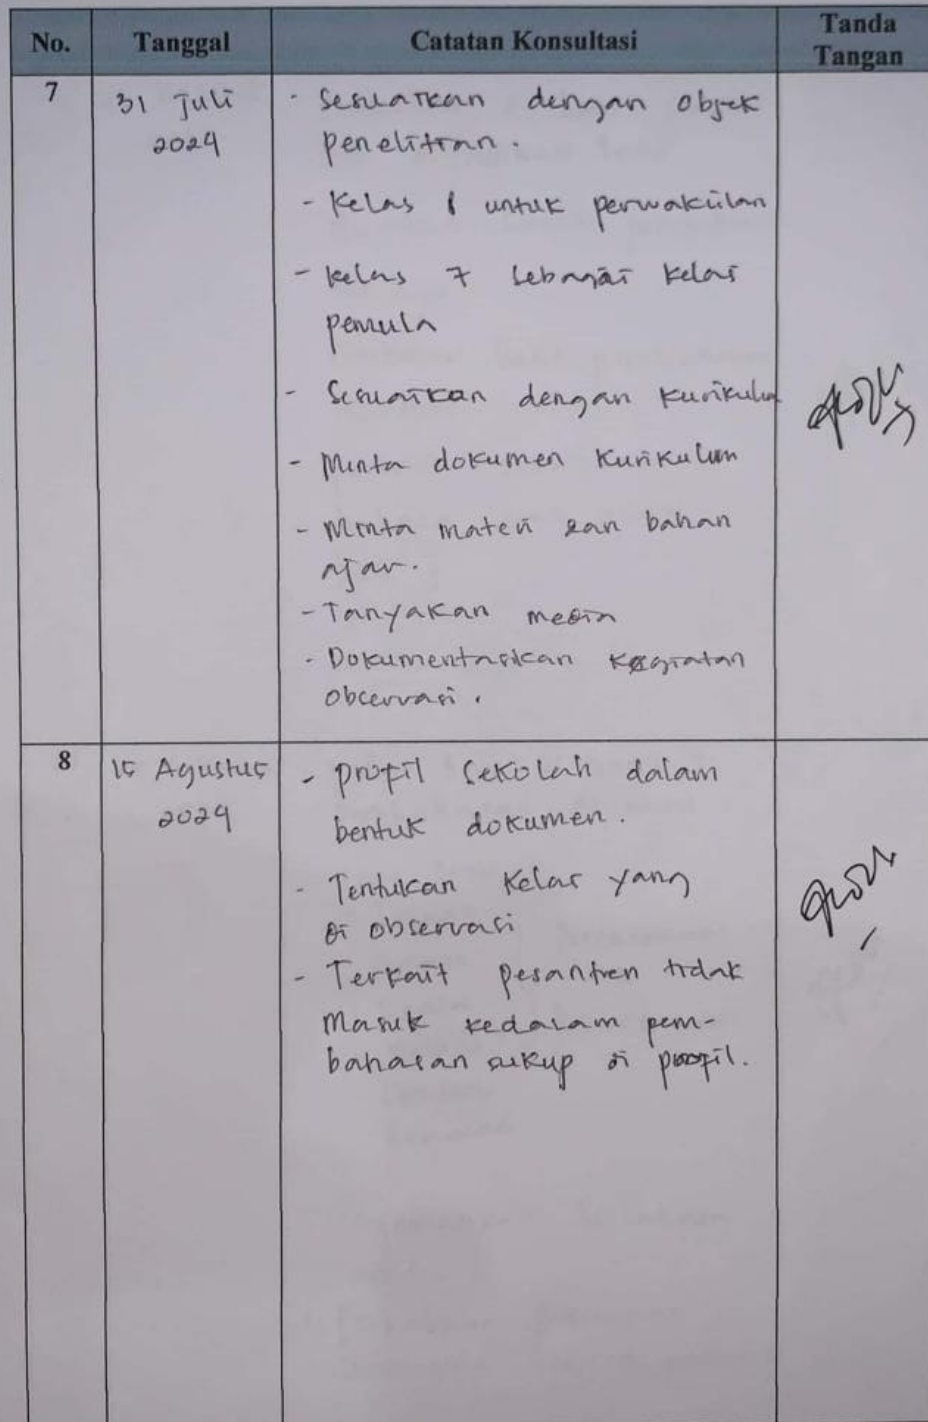 No. Tanggal Catatan Konsultasi Tanda Tangan
7
31 Juli
2024
- Sesuaikan dengan objek
penelitian.
- Kelas 1 untuk perwakilan
- kelas 7 sebagai kelas
pemula
- Sesuaikan dengan kurikulum
- Minta dokumen kurikulum
- Minta materi dan bahan
ajar.
- Tanyakan media
- Dokumentasikan kegiatan
observasi.
8
15 Agustus
2024
- profil sekolah dalam
bentuk dokumen.
- Tentukan kelas yang
di observasi
- Terkait pesantren tidak
masuk kedalam pem-
bahasan cukup di profil.